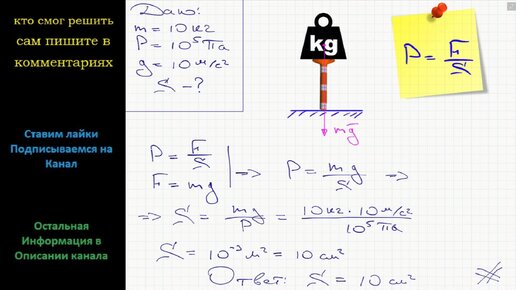 кто смог решить
сам пишите в
комментариях
Ставим лайки
Подписываемся на
Канал
Остальная
Информация в
Описании канала
Дано:
m = 10 кг
P = 10⁵ Па
g = 10 м/с²
S - ?
kg
mg
P = F/S
P = F/S
F = mg
=> P = mg/S =>
=> S = mg/P = 10 кг · 10 м/с² / 10⁵ Па
S = 10⁻³ м² = 10 см²
Ответ: S = 10 см²